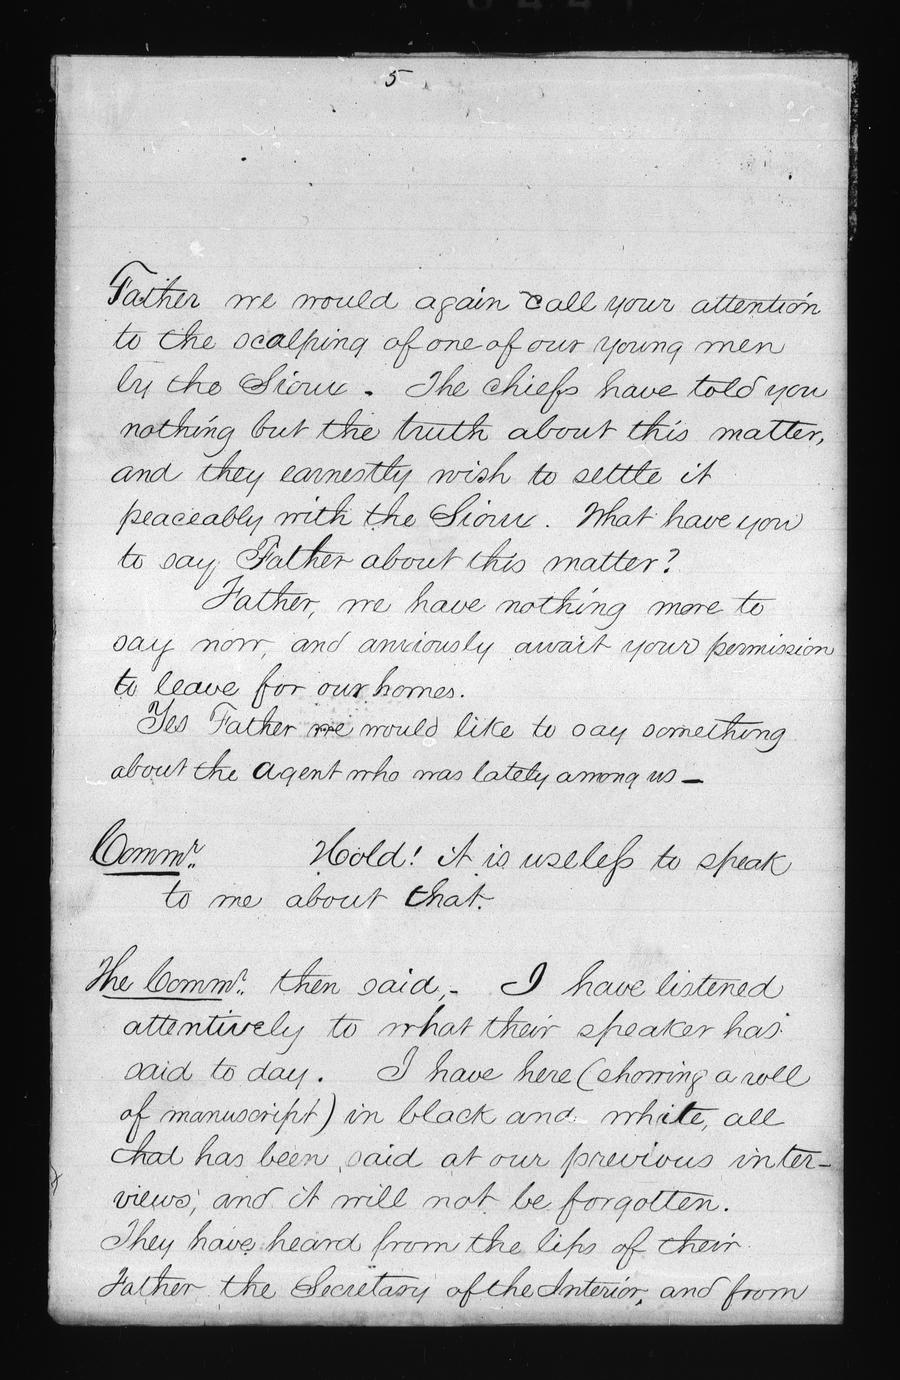 5
Father we would again call your attention
to the scalping of one of our young men
by the Sioux. The chiefs have told you
nothing but the truth about this matter,
and they earnestly wish to settle it
peaceably with the Sioux. What have you
to say Father about this matter?
Father, we have nothing more to
say now, and anxiously await your permission
to leave for our homes.
Yes Father we would like to say something
about the agent who was lately among us —
Commr. Hold! it is useless to speak
to me about that.
The Commr. then said,- I have listened
attentively to what their speaker has
said to day. I have here (showing a roll
of manuscript) in black and white, all
that has been said at our previous inter-
views, and it will not be forgotten.
They have heard from the lips of their
Father the Secretary of the Interior, and from